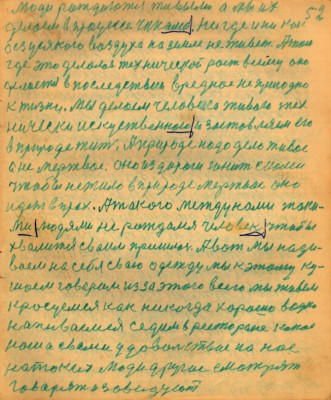 52
Люди рождаются живыми а мы их
делаем в природе чужими. Нигде и ни кого
без всякого воздуха на земле не живет. А там
где это делалось технический рост всему оно
делается в последствии вредное не пригодно
к жизни. Мы делаем человека живого тех
нически искусственное и заставляем его
в природе жить. А природе надо дело живое
а не мертвое. Оно из дороги гонит с колеи
чтобы не жило в природе мертвое оно
идет в прах. А такого между нами таки
ми людями не рождался человек чтобы
хвалится своим прошлым. А вот мы наде
ваем на себя свою одежду мы к этому ку
шаем говорим из за этого всего мы живем
красуемся как никогда хорошо водки
напиваемся седим в ресторане
наша с вами удовольствие на нас
на таких люди другие смотрят
говорят завидуют